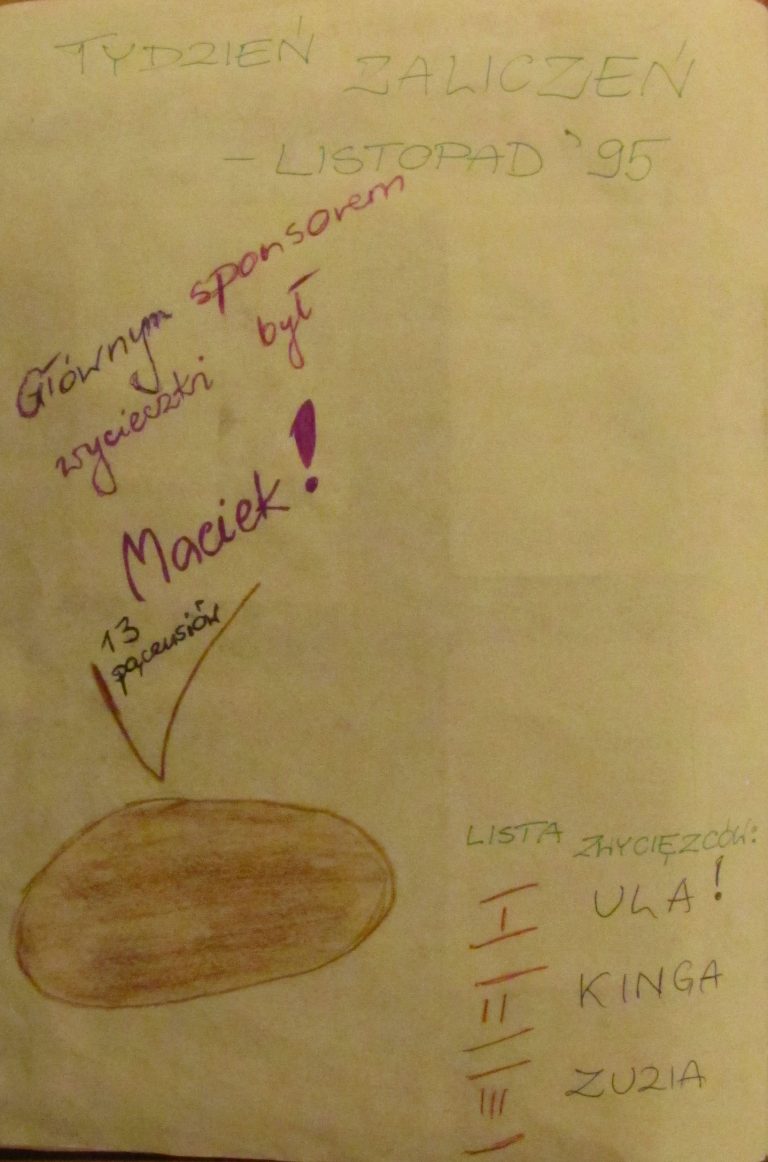 TYDZIEŃ ZALICZEŃ
- LISTOPAD '95
Głównym sponsorem
wycieczki był
Maciek!
13
pączusiów
LISTA ZWYCIĘZCÓW:
I ULA!
II KINGA
III ZUZIA